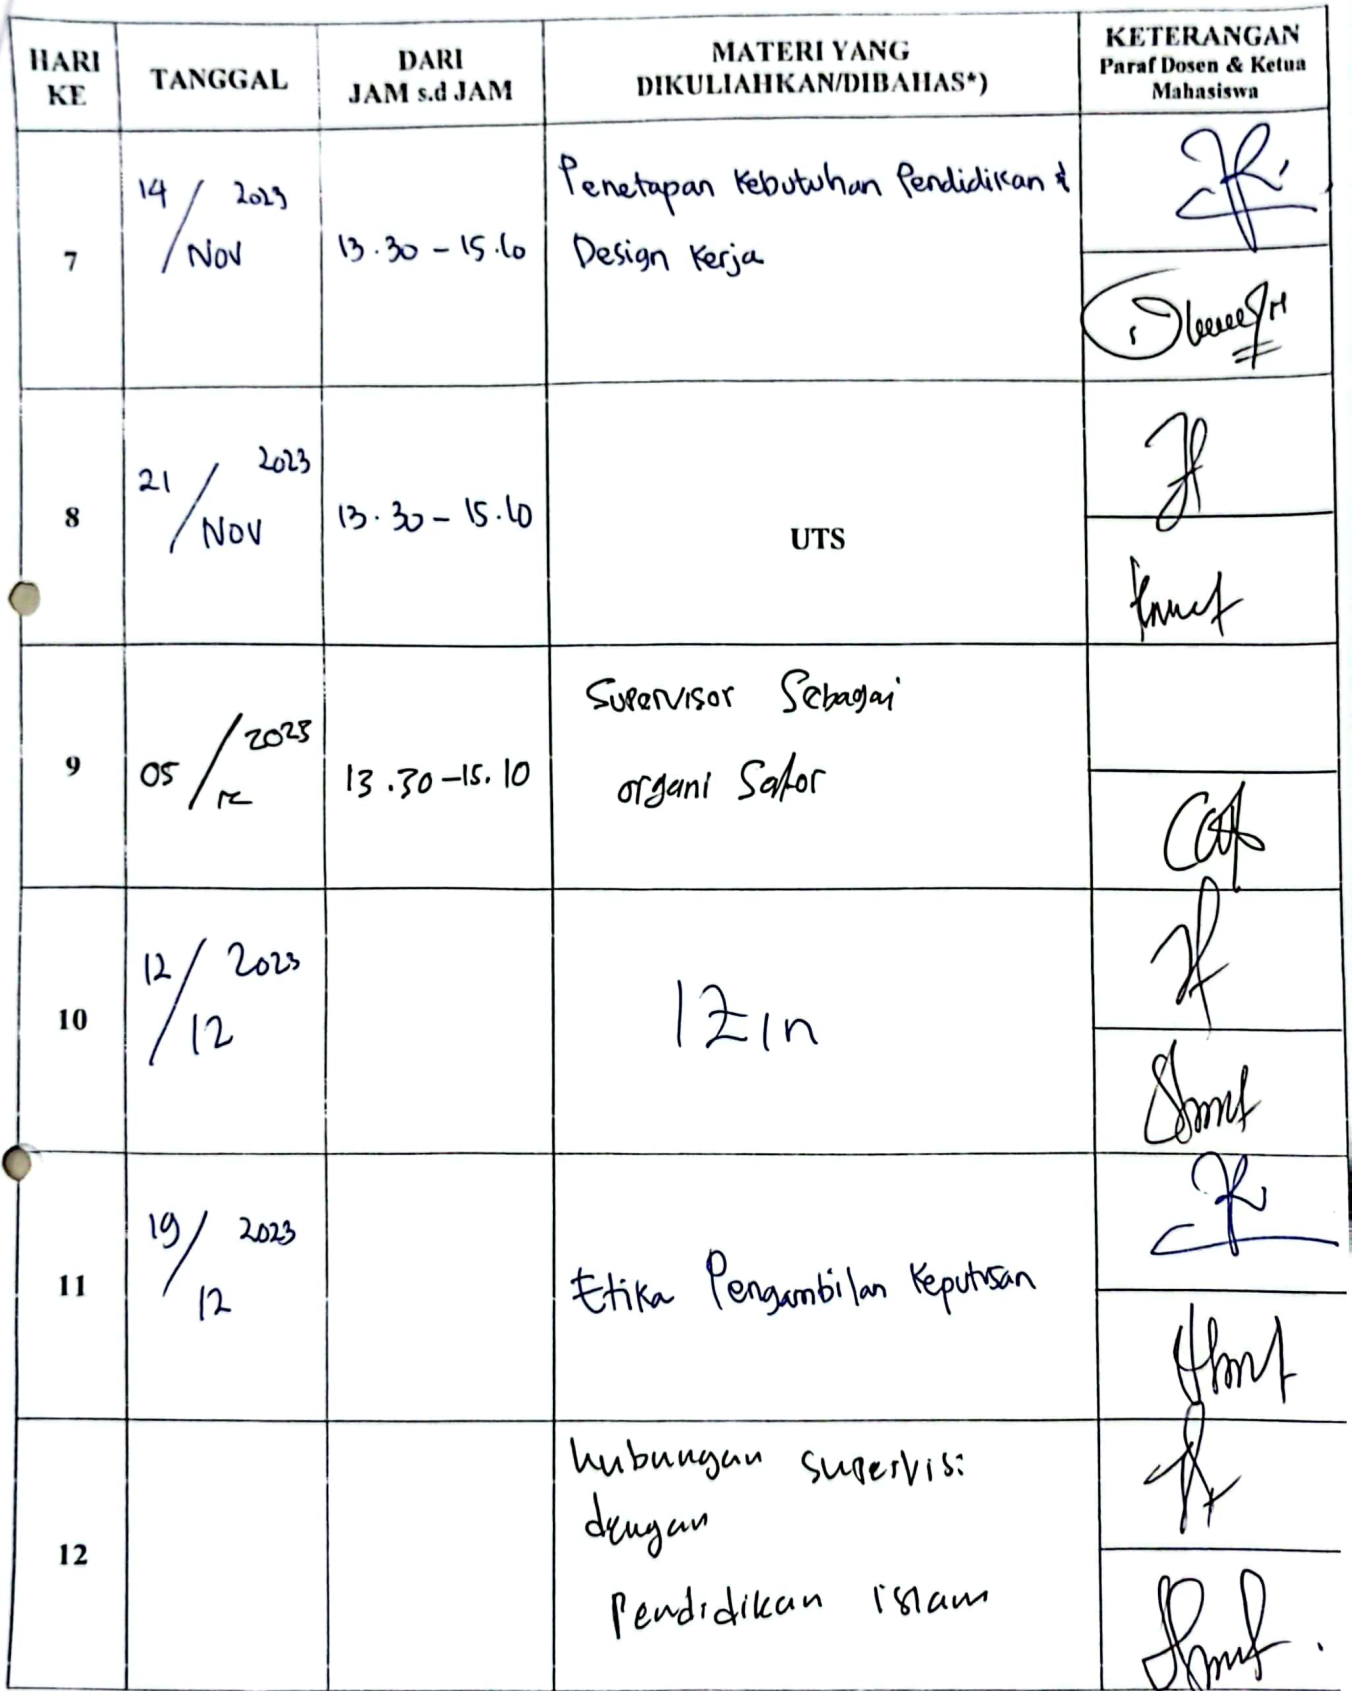 HARI KE
TANGGAL
DARI
JAM s.d JAM
MATERI YANG
DIKULIAHKAN/DIBAHAS*)
KETERANGAN
Paraf Dosen & Ketua
Mahasiswa
7
14 / Nov 2023
13.30 - 15.10
Penetapan Kebutuhan Pendidikan &
Design Kerja
8
21 / Nov 2023
13.30 - 15.10
UTS
9
05 / 12 2023
13.30 - 15.10
Supervisor Sebagai
organi Sator
10
12 / 12 2023
Izin
11
19 / 12 2023
Etika Pengambilan Keputusan
12
hubungan supervisi
dengan
Pendidikan islam